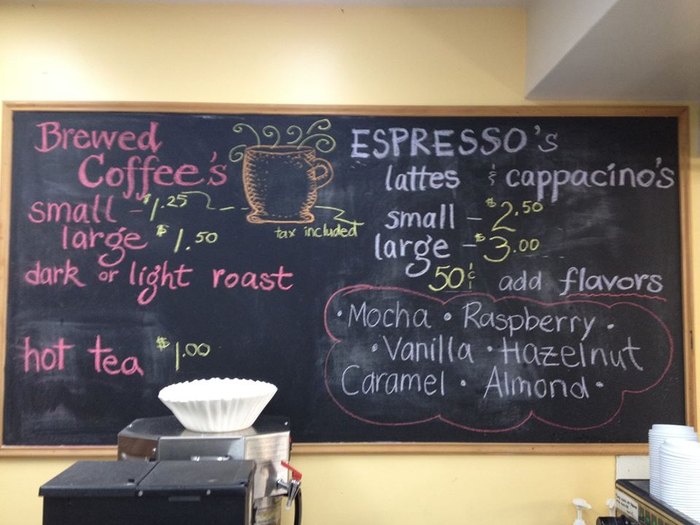 Brewed
Coffee's
small - $1.25
large $1.50
tax included
dark or light roast
hot tea $1.00
ESPRESSO's
lattes & cappacino's
small - $2.50
large - $3.00
50¢ add flavors
• Mocha • Raspberry •
• Vanilla • Hazelnut
Caramel • Almond •